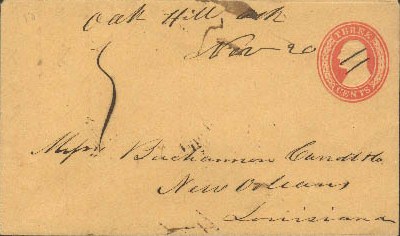 Oak Hill, Ark
Nov 20
THREE
CENTS
Messrs Buchannon & Co
New Orleans
Louisiana